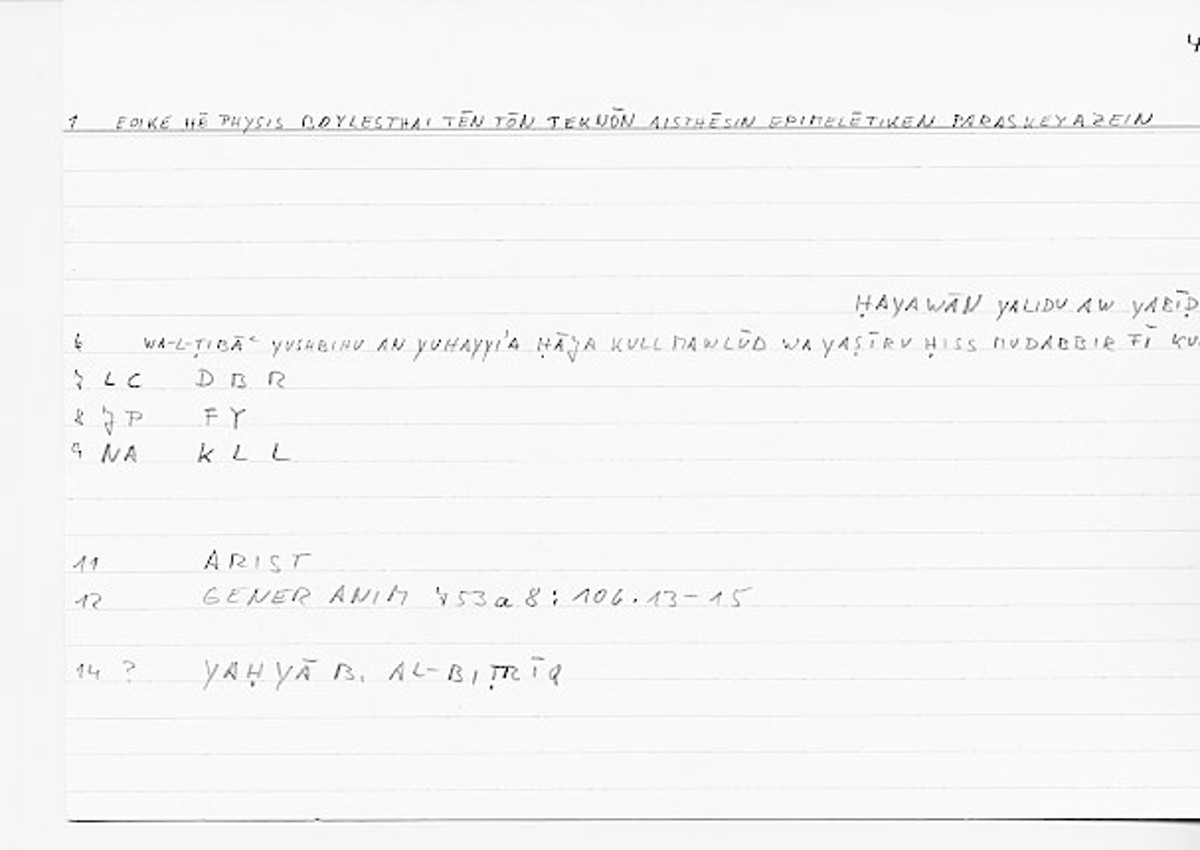 1 EOIKE HĒ PHYSIS BOYLESTHAI TĒN TŌN TEKNŌN AISTHĒSIN EPIMELĒTIKEN PARASKEYAZEIN
ḤAYAWĀN YALIDU AW YABĪḌ
6 WA-L-ṬIBĀʿ YUSHBIHU AN YUHAYYI'A ḤĀJA KULL MAWLŪD WA YAṢĪRU ḤISS MUDABBIR FĪ
7 LC D B R
8 JP F Y
9 NA K L L
11 ARIST
12 GENER ANIM 753a8:106.13-15
14 ? YAḤYĀ B. AL-BIṬRĪQ